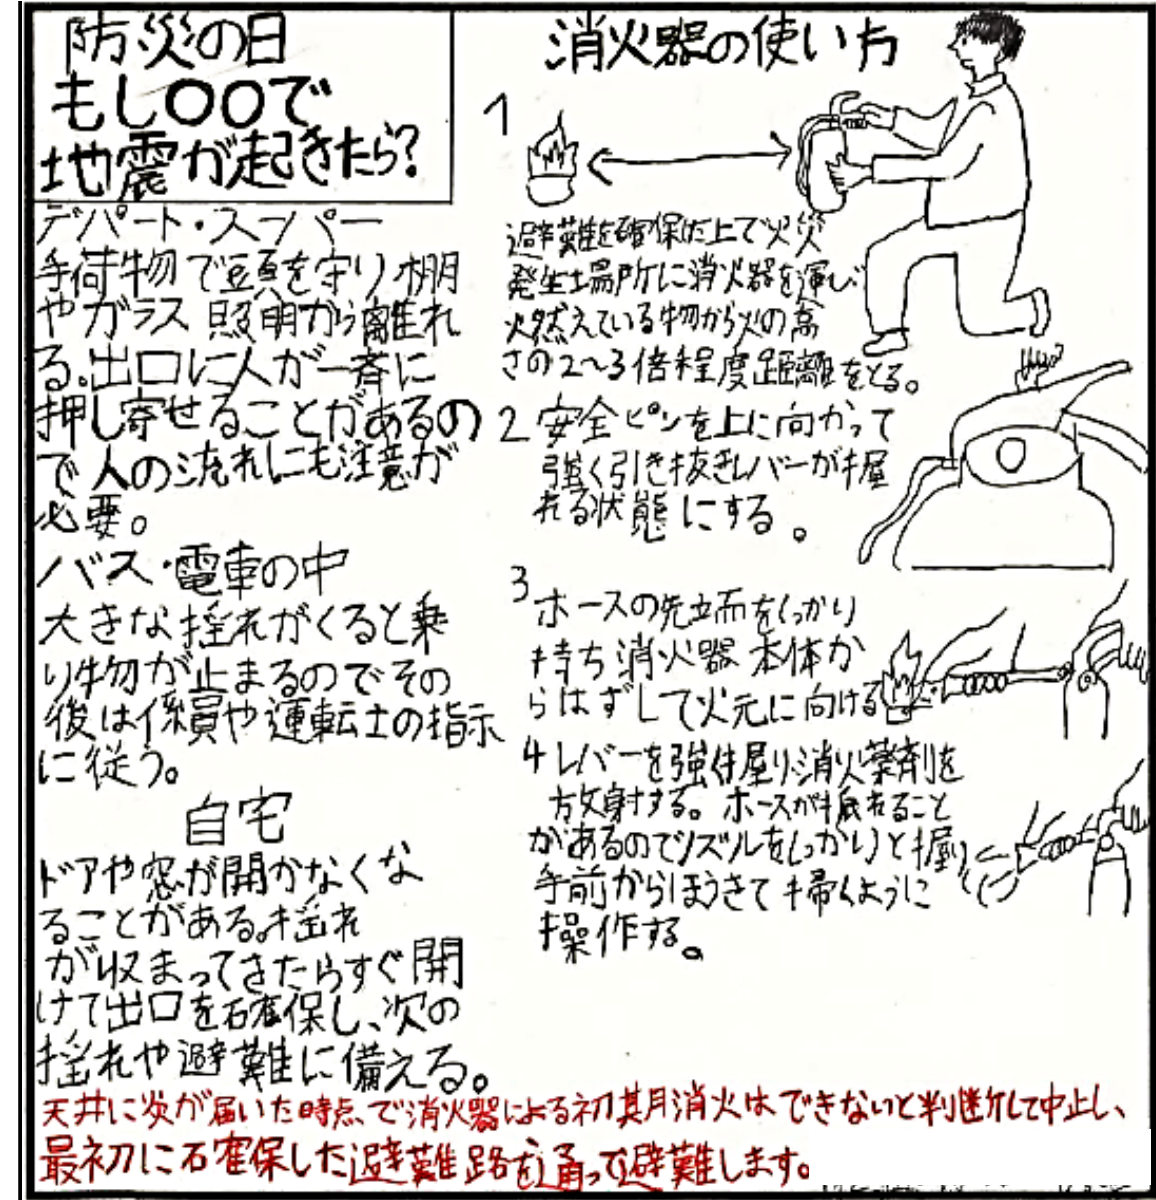 防災の日
もし〇〇で
地震が起きたら?
デパート・スーパー
手荷物で頭を守り棚
やガラス照明から離れ
る。出口に人が一斉に
押し寄せることがあるの
で人の流れにも注意が
必要。
バス・電車の中
大きな揺れがくると乗
り物が止まるのでその
後は係員や運転士の指示
に従う。
自宅
ドアや窓が開かなくな
ることがある。揺れ
が収まってきたらすぐ開
けて出口を確保し、次の
揺れや避難に備える。
消火器の使い方
1
避難を確保した上で火災
発生場所に消火器を運び
火燃えている物から火の高
さの2~3倍程度距離をとる。
2 安全ピンを上に向かって
強く引き抜きレバーが握
れる状態にする。
3 ホースの先端をしっかり
持ち消火器本体か
らはずして火元に向ける
4 レバーを強く握り消火薬剤を
放射する。ホースが揺れること
があるのでノズルをしっかりと握り
手前からほうきで掃くように
操作する。
天井に炎が届いた時点で消火器による初期消火はできないと判断して中止し、
最初に確保した避難路を通って避難します。